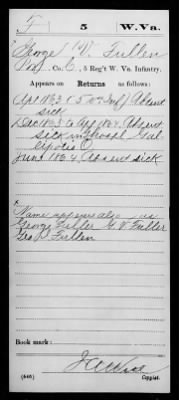 F 5 W. Va.
George W. Fullen
Pvt, Co. C, 5 Reg't W. Va. Infantry.
Appears on
Returns as follows:
Apr 1863 (5 Va Inf) Absent
sick
Dec 1863 to Apr 1864, Absent
sick in hospital Gal-
lipolis O.
June 1864, Absent sick
Name appears also as
George Fuller G. W. Fuller
Geo. P. Fullen
Book mark:
(646) Copyist.